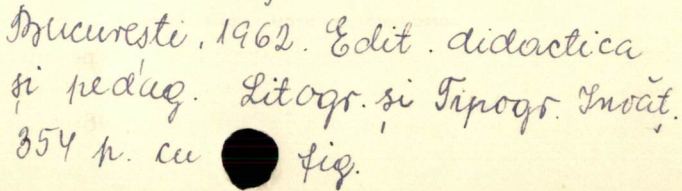 București, 1962. Edit. didactica
și pedag. Litogr. și Tipogr. Invăț.
354 p. cu fig.